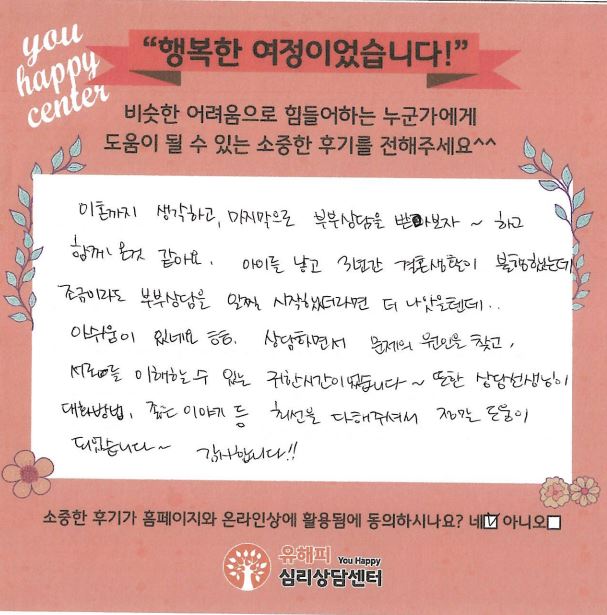 you
happy
center
“행복한 여정이었습니다!”
비슷한 어려움으로 힘들어하는 누군가에게
도움이 될 수 있는 소중한 후기를 전해주세요^^
이혼까지 생각하고, 마지막으로 부부상담을 받아보자 ~ 하고
함께 온것 같아요. 아이를 낳고 3년간 결혼생활이 불행했는데
조금이라도 부부상담을 일찍 시작했더라면 더 나았을텐데..
아쉬움이 있네요 ㅎㅎ. 상담하면서 문제의 원인을 찾고,
서로를 이해할 수 있는 귀한시간이었습니다~ 또한 상담선생님이
대화방법, 좋은 이야기 등 최선을 다해주셔서 정말 도움이
되었습니다~ 감사합니다!!
소중한 후기가 홈페이지와 온라인상에 활용됨에 동의하시나요? 네☑ 아니오☐
유해피 You Happy
심리상담센터